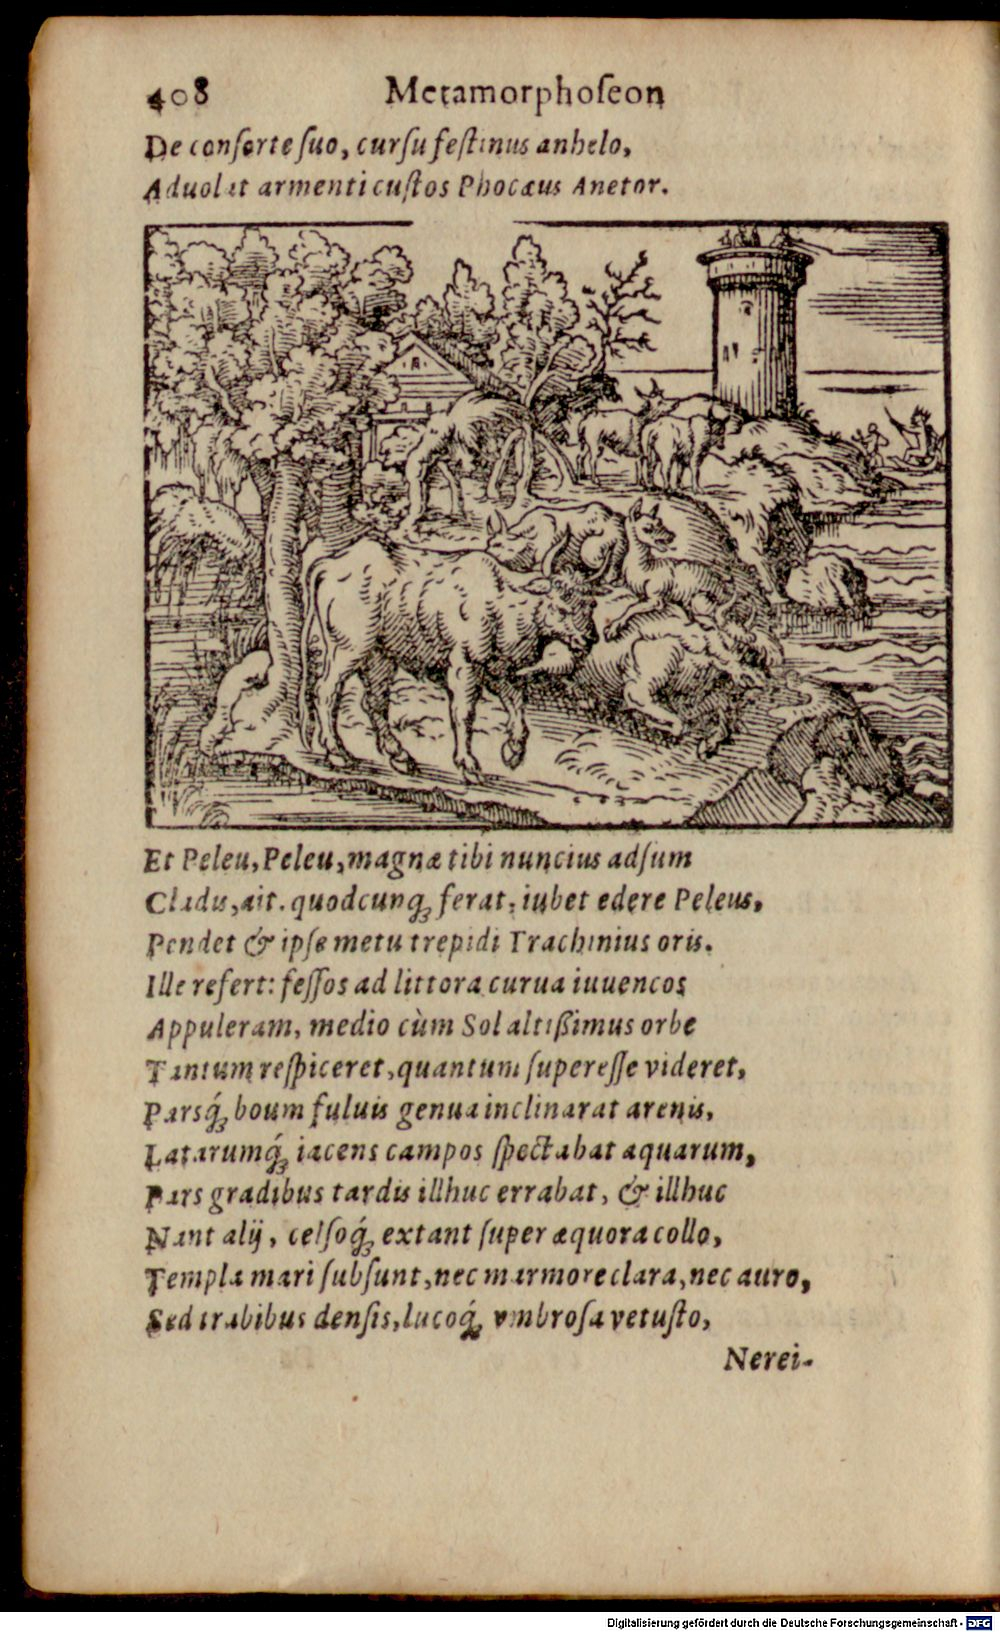 408 Metamorphoſeon
De conſorte ſuo, curſu feſtinus anhelo,
Aduolat armenti cuſtos Phocæus Anetor.
Et Peleu, Peleu, magnæ tibi nuncius adſum
Cladis, ait. quodcunq; ferat, iubet edere Peleus,
Pendet & ipſe metu trepidi Trachinius oris.
Ille refert: feſſos ad littora curua iuuencos
Appuleram, medio cùm Sol altißimus orbe
Tantum reſpiceret, quantum ſupereſſe videret,
Parsq́; boum fuluis genua inclinarat arenis,
Latarumq́; iacens campos ſpectabat aquarum,
Pars gradibus tardis illhuc errabat, & illhuc
Nant alij, celſoq́; extant ſuper æquora collo,
Templa mari ſubſunt, nec marmore clara, nec auro,
Sed trabibus denſis, lucoq́; vmbroſa vetuſto,
Nerei-
Digitalisierung gefördert durch die Deutsche Forschungsgemeinschaft - DFG